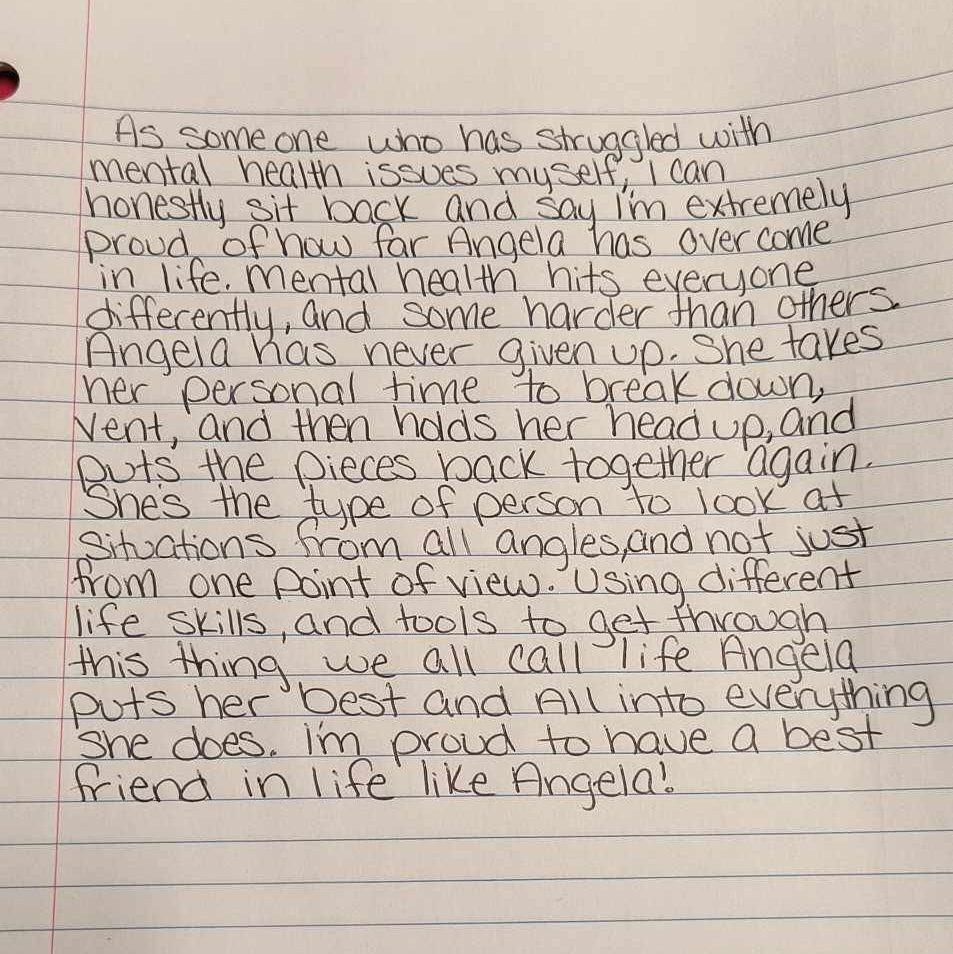 As someone who has struggled with
mental health issues myself, I can
honestly sit back and say I'm extremely
proud of how far Angela has overcome
in life. Mental health hits everyone
differently, and some harder than others.
Angela has never given up. She takes
her personal time to break down,
vent, and then holds her head up, and
puts the pieces back together again.
She's the type of person to look at
situations from all angles, and not just
from one point of view. Using different
life skills, and tools to get through
this thing we all call life Angela
puts her best and All into everything
she does. I'm proud to have a best
friend in life like Angela!